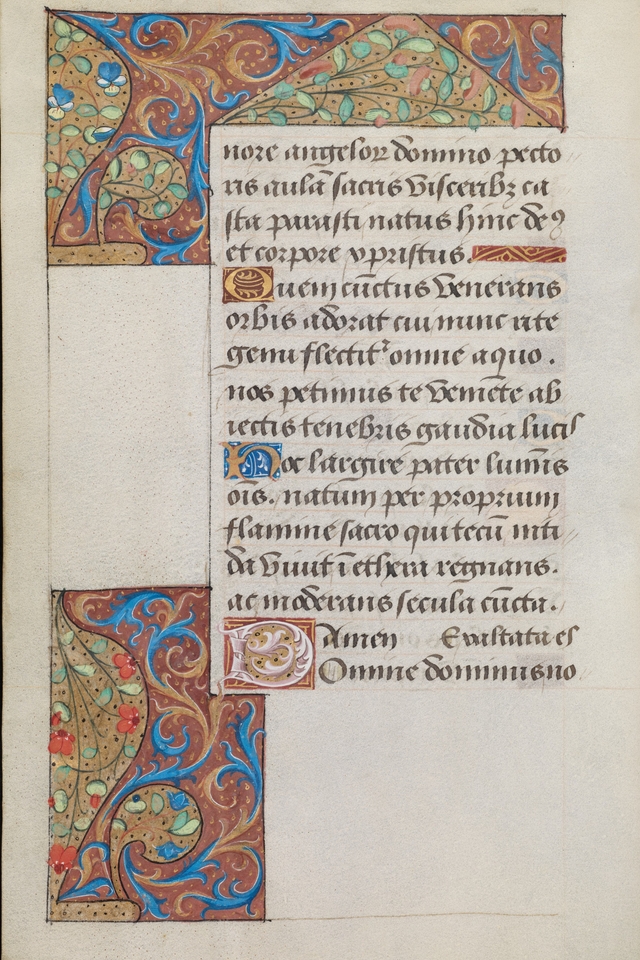 nore angeloꝝ domino pecto
ris aulā sacris visceribꝫ ca
sta parasti natus hinc deꝯ
et corpore xpristus.
Quem cūctus venerans
orbis adorat cui nunc rite
genu flectitᷣ omne a quo.
nos petimus te veniēte ab
iectis tenebris gaudia lucis
Hoc largire pater lumīs
oīs. natum per proprium
flamine sacro qui tecū niti
da viuit ī ethera regnans.
ac moderans secula cūcta.
Amen Exaltata es
Domine dominus no